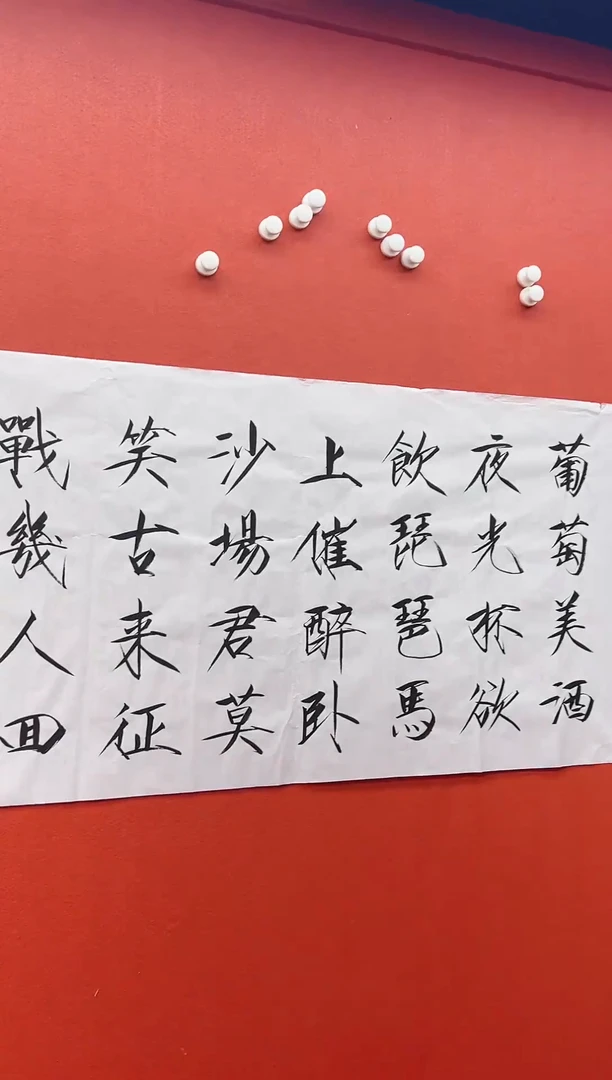 葡萄美酒
夜光杯欲
飲琵琶馬
上催醉卧
沙場君莫
笑古来征
戰幾人回